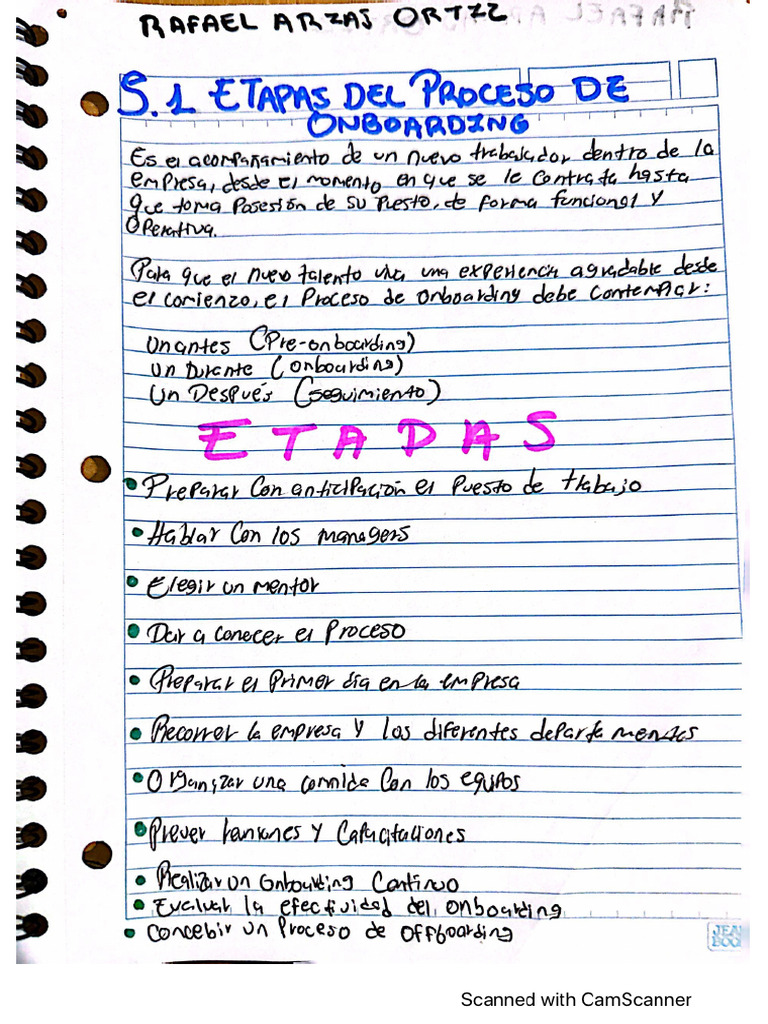 RAFAEL ARZAS ORTIZ
5.1 ETAPAS DEL PROCESO DE
ONBOARDING
Es el acompañamiento de un nuevo trabajador dentro de la
empresa, desde el momento en que se le contrata hasta
que toma posesión de su puesto, de forma funcional y
operativa.
Para que el nuevo talento viva una experiencia agradable desde
el comienzo, el proceso de onboarding debe contemplar:
Un antes (Pre-onboarding)
un Durante (onboarding)
Un Después (seguimiento)
ETAPAS
• Preparar con anticipación el puesto de trabajo
• Hablar con los managers
• Elegir un mentor
• Dar a conecer el proceso
• Preparar el primer día en la empresa
• Recorrer la empresa y los diferentes departamentos
• Organizar una comida con los equipos
• Prever reuniones y capacitaciones
• Realizar un Onboarding Continuo
• Evaluar la efectividad del onboarding
• Concebir un proceso de offboarding
JEAN
BOOK
Scanned with CamScanner